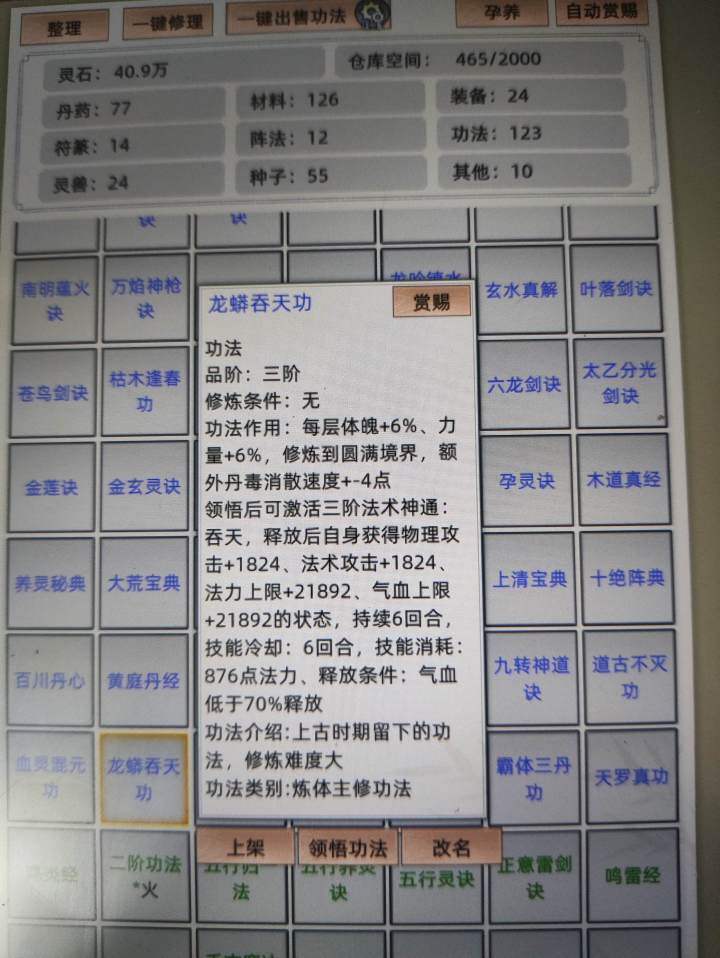 整理 一键修理 一键出售功法 孕养 自动赏赐
灵石：40.9万 仓库空间： 465/2000
丹药：77 材料：126 装备：24
符篆：14 阵法：12 功法：123
灵兽：24 种子：55 其他：10
诀 诀
南明蕴火诀 万焰神枪诀 玄水真解 叶落剑诀
龙蟒吞天功 赏赐
功法
品阶：三阶
修炼条件：无
功法作用：每层体魄+6%、力
量+6%，修炼到圆满境界，额
外丹毒消散速度+-4点
领悟后可激活三阶法术神通：
吞天，释放后自身获得物理攻
击+1824、法术攻击+1824、
法力上限+21892、气血上限
+21892的状态，持续6回合，
技能冷却：6回合，技能消耗：
876点法力、释放条件：气血
低于70%释放
功法介绍:上古时期留下的功
法，修炼难度大
功法类别:炼体主修功法
苍鸟剑诀 枯木逢春功 六龙剑诀 太乙分光剑诀
金莲诀 金玄灵诀 孕灵诀 木道真经
养灵秘典 大荒宝典 上清宝典 十绝阵典
百川丹心 黄庭丹经 九转神道诀 道古不灭功
血灵混元功 龙蟒吞天功 霸体三丹功 天罗真功
上架 领悟功法 改名
二阶功法*火 五行归法 五行养灵诀 五行灵诀 正意雷剑诀 鸣雷经